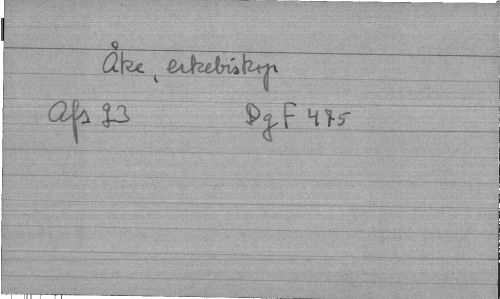 Åke, erkebiskop
Afs 93 DgF 475